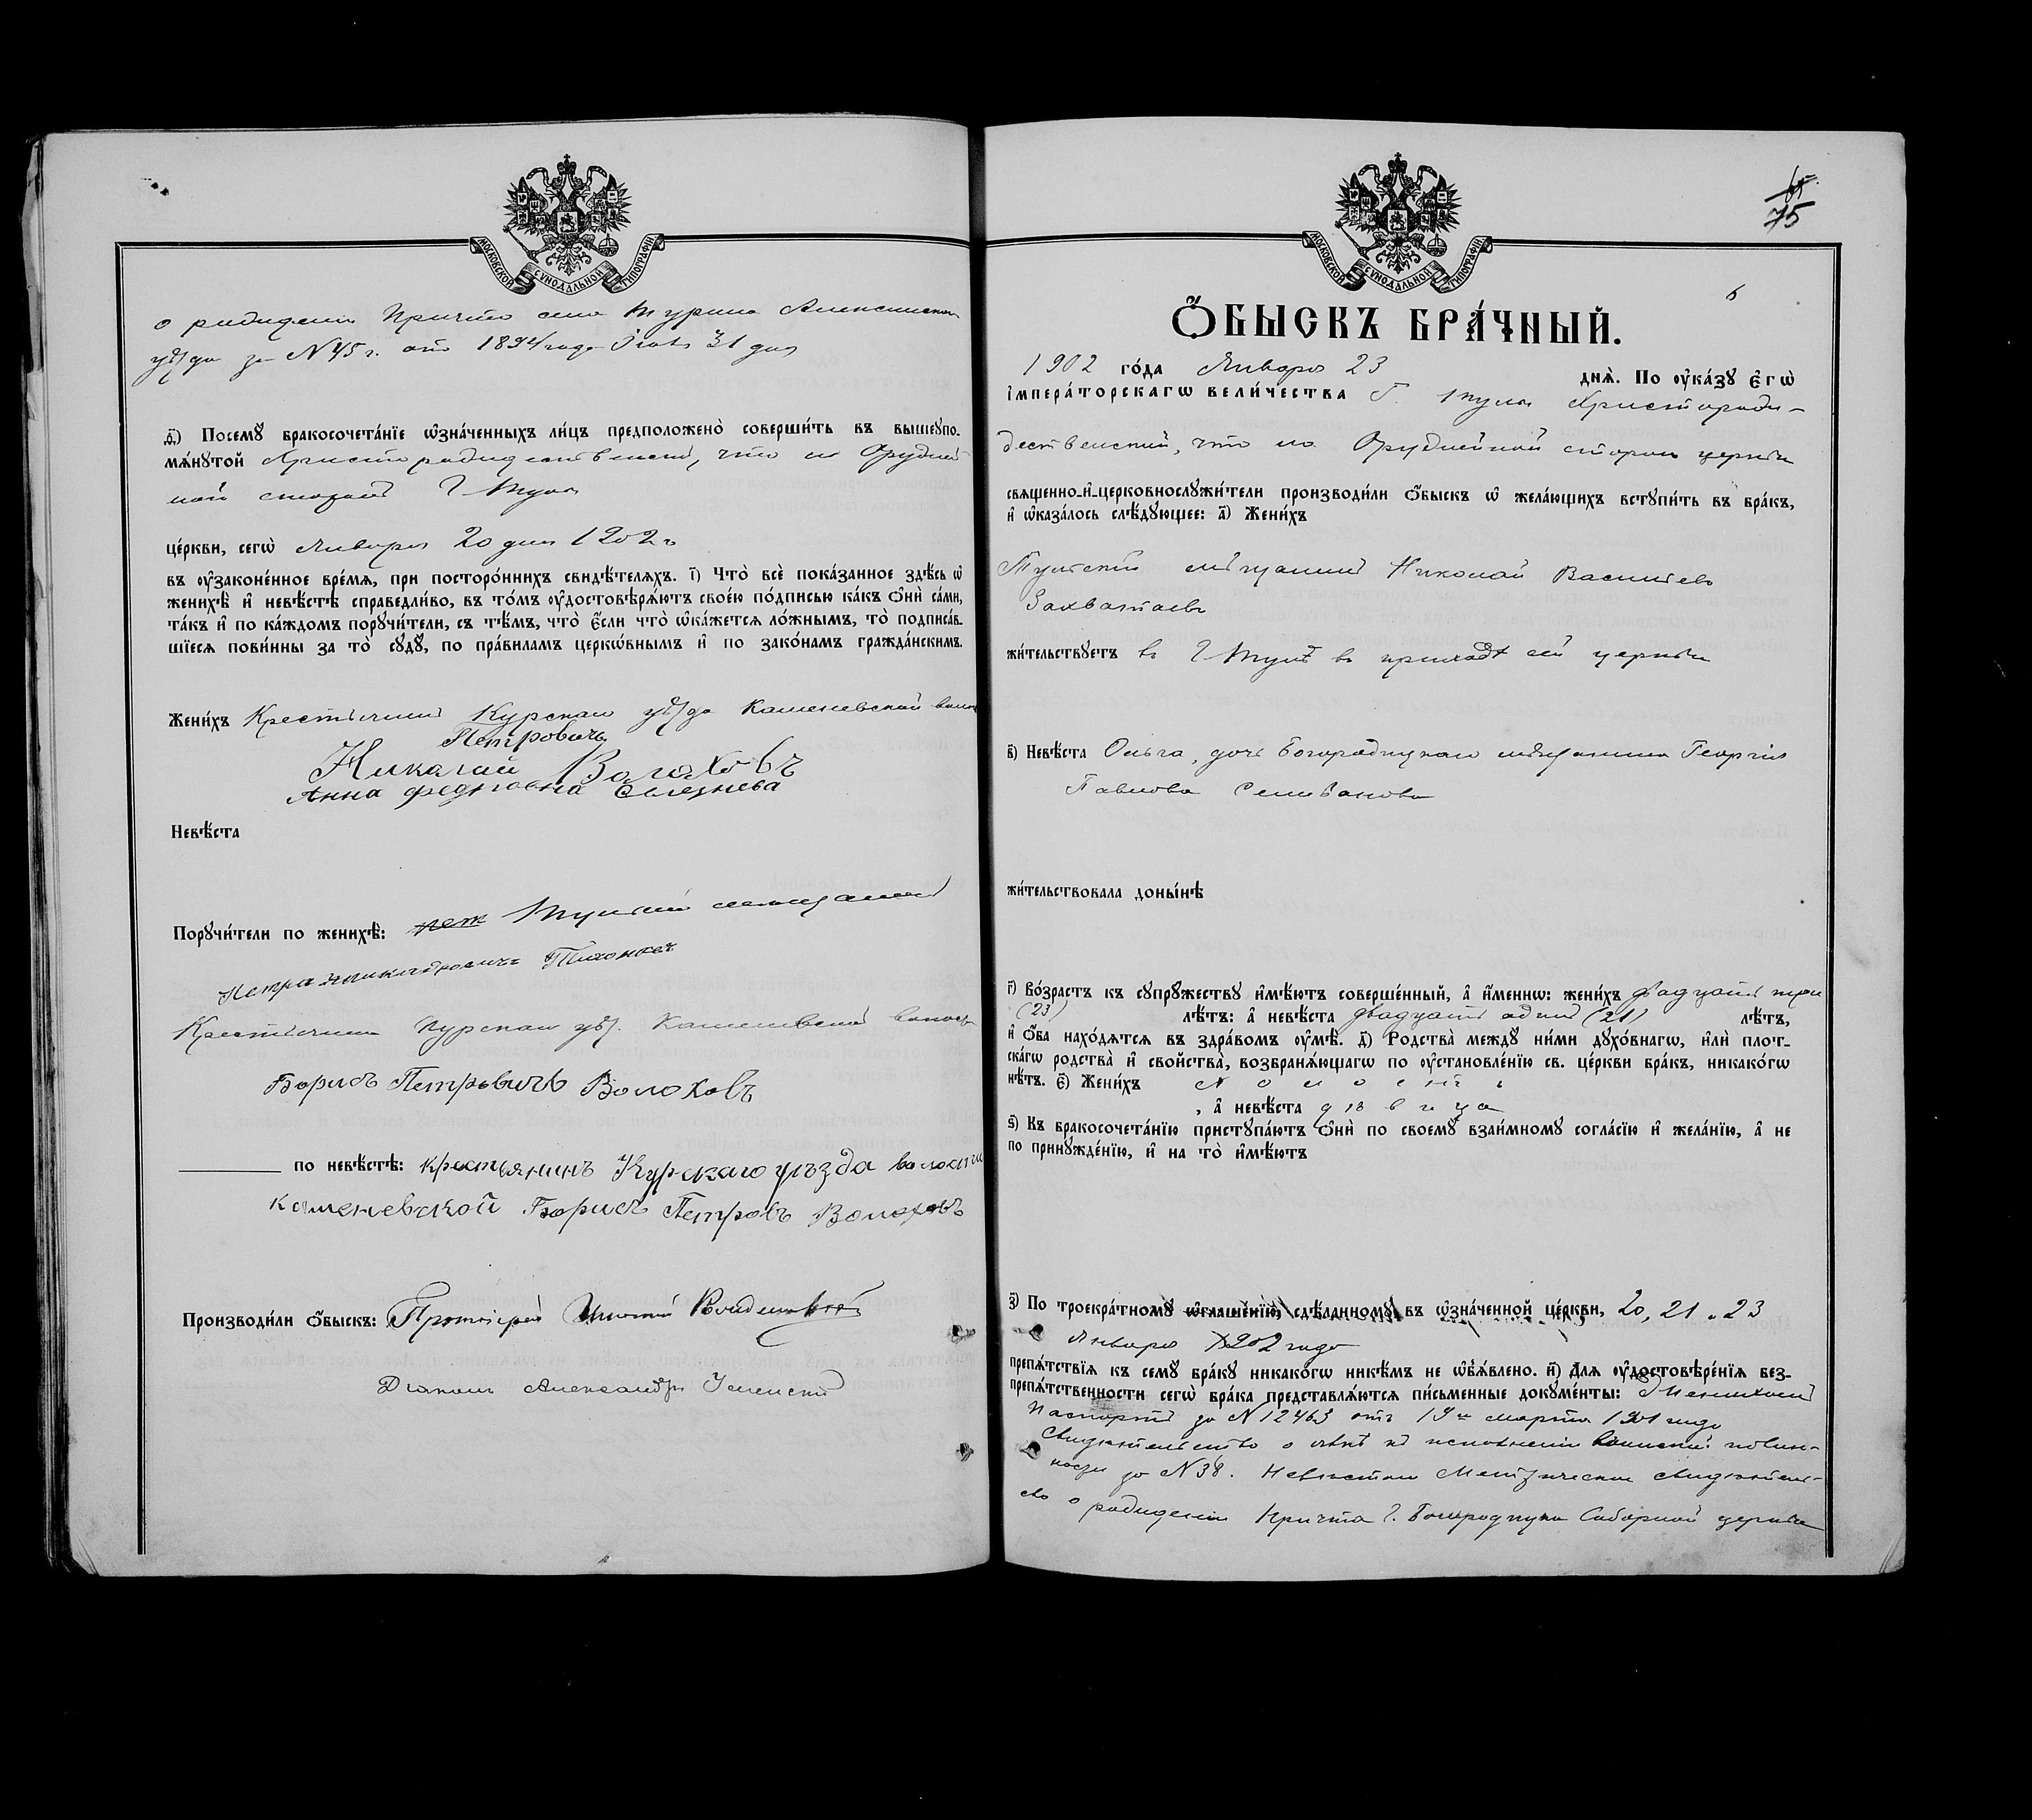 МОСКОВСКОЙ СѴНОДАЛЬНОЙ ТИПОГРАФІИ
о рождении Причта села Алексинскаго
уѣзда за N 45 г. отъ 1894 года 31 дня
д҃) Посемꙋ бракосочета́нїе ѡ҆зна́ченныхъ ли́цъ предположено̀ соверши́ть въ вышеꙋпо-
мѧ́нꙋтой Христорождественской, что на Оружей-
ной сторонѣ г Тулы
це́ркви, сегѡ̀ Января 20 дня 1902 г
въ ᲂу҆зако́ненное вре́мѧ, при посторо́ннихъ свидѣ́телѧхъ. і҃) Что̀ всѐ пока́занное здѣ́сь ѡ҆
женихѣ̀ и҆ невѣ́стѣ справедли́во, въ то́мъ ᲂу҆достовѣрѧ́ютъ свое́ю по́дписью ка́къ ѻ҆нѝ са́ми,
та́къ и҆ по ка́ждомъ порꙋчи́тели, съ тѣ́мъ, что̀ є҆́сли что̀ ѡ҆ка́жетсѧ ло́жнымъ, то̀ подписа́в-
шїесѧ пови́нны за то̀ сꙋдꙋ̀, по пра́виламъ церкѡ́внымъ и҆ по зако́намъ гражда́нскимъ.
Жени́хъ Крестьянинъ Курскаго уѣзда Каменевской волос
Петровичъ
Николай Волоховъ
Анна Федоровна Селезнева
Невѣ́ста
Порꙋчи́тели по женихѣ̀: Тульский мещанинъ
Петръ Никандровичъ Тихоновъ
Крестьянинъ Курскаго уѣз. Каменевской волости
Борисъ Петровичъ Волоховъ
по невѣ́стѣ: крестьянинъ Курскаго уѣзда волости
каменевской Борисъ Петровъ Волоховъ
Производи́ли ѻ҆́быскъ: Протоіерей
Діаконъ Александръ Успенскій
МОСКОВСКОЙ СѴНОДАЛЬНОЙ ТИПОГРАФІИ
75
6
Ѻ҆́БЫСКЪ БРА́ЧНЫЙ.
1902 го́да Января 23 днѧ̀. По ᲂу҆ка́зꙋ є҆гѡ̀
і҆мпера́торскагѡ вели́чества Г. Тулы Христорож-
дественской, что на Оружейной сторонѣ церкви
свѧще́нно-и҆-церковнослꙋжи́тели производи́ли ѻ҆́быскъ ѡ҆ жела́ющихъ встꙋпи́ть въ бра́къ,
и҆ ѡ҆каза́лось слѣ́дꙋющее: а҃) Жени́хъ
Тульскій мѣщанинъ Николай Васильевъ
Захватаевъ
жи́тельствꙋетъ въ г Тулѣ въ приходѣ сей церкви
в҃) Невѣ́ста Ольга, дочь Богородицкаго мѣщанина Георгія
Павлова Селиванова
жи́тельствовала доны́нѣ
г҃) Во́зрастъ къ сꙋпрꙋ́жествꙋ и҆мѣ́ютъ соверше́нный, а҆ и҆́менно: жени́хъ двадцати трехъ
(23) лѣ́тъ: а҆ невѣ́ста двадцати одного (21) лѣ́тъ,
и҆ ѻ҆́ба нахо́дѧтсѧ въ здра́вомъ ᲂу҆мѣ̀. д҃) Родства̀ междꙋ ни́ми дꙋхо́внагѡ, и҆лѝ плот-
ска́гѡ родства̀ и҆ сво́йства̀, возбранѧ́ющагѡ по ᲂу҆становле́нїю св. це́ркви бра́къ, никако́гѡ
нѣ́тъ. є҃) Жени́хъ холостъ
, а҆ невѣ́ста дѣвица
ѕ҃) Къ бракосочета́нїю пристꙋпа́ютъ ѻ҆нѝ по своемꙋ̀ взаи́мномꙋ согла́сїю и҆ жела́нїю, а҆ не
по принꙋжде́нїю, и҆ на то̀ и҆мѣ́ютъ
з҃) По троекра́тномꙋ ѡ҆глаше́нїю, сдѣ́ланномꙋ въ ѡ҆зна́ченной це́ркви, 20, 21 и 23
Января 1902 года
препѧ́тствїѧ къ семꙋ̀ бра́кꙋ никако́гѡ никѣ́мъ не ѡ҆б̾ѧ́влено. и҃) Длѧ ᲂу҆достовѣре́нїѧ без-
препѧ́тственности сегѡ̀ бра́ка представлѧ́ютсѧ пи́сьменные докꙋме́нты: Женихомъ
Паспортъ за N 12463 отъ 19го марта 1901 года
Свидѣтельство о явкѣ къ исполненію воинской повин-
ности за N 38. Невѣстою Метрическое свидѣтельст-
во о рождении Причта г. Богородицка Соборной церкви